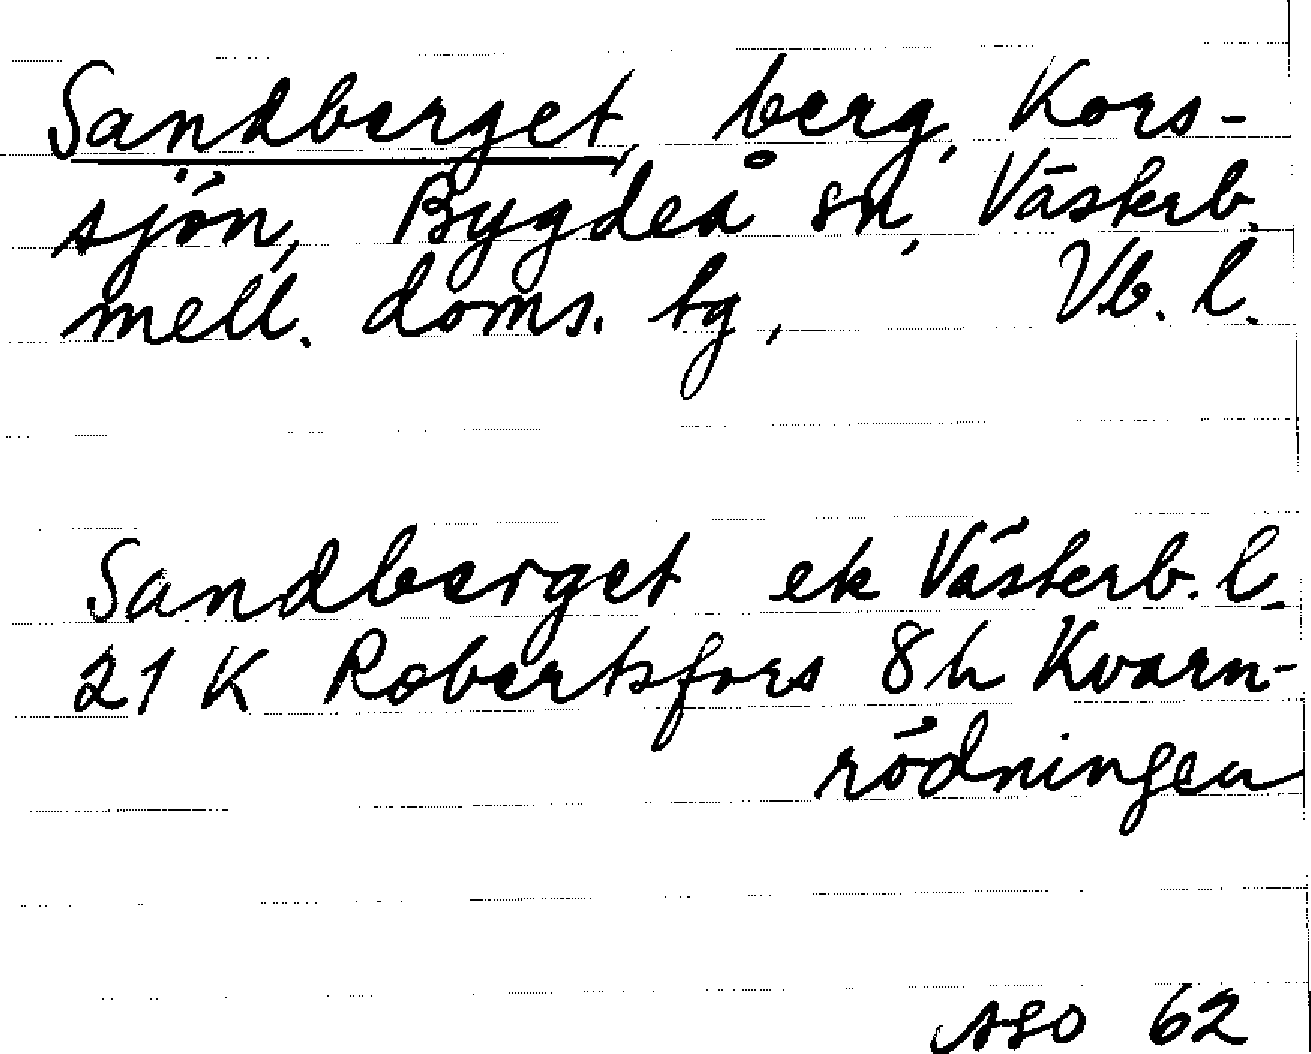 Sandberget, berg, Kors-
sjön, Bygdeå sn, Västerb.
mell. doms. tg, Vb. l.
Sandberget ek Västerb. l.
21 K Robertsfors 8h Kvarn-
rödningen
ASO 62